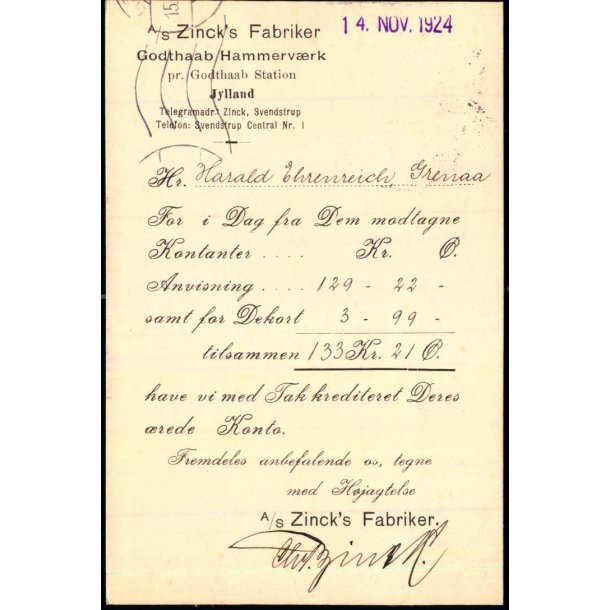 A/s Zinck's Fabriker
14. NOV. 1924
Godthaab Hammerværk
pr. Godthaab Station
Jylland
Telegramadr.: Zinck, Svendstrup
Telefon: Svendstrup Central Nr. 1
Hr. Harald Ehrenreich, Grenaa
For i Dag fra Dem modtagne
Kontanter .... Kr. Ø.
Anvisning .... 129 - 22 -
samt for Dekort 3 - 99 -
tilsammen 133 Kr. 21 Ø.
have vi med Tak krediteret Deres
ærede Konto.
Fremdeles anbefalende os, tegne
med Højagtelse
A/s Zinck's Fabriker.
Chr. Zinck